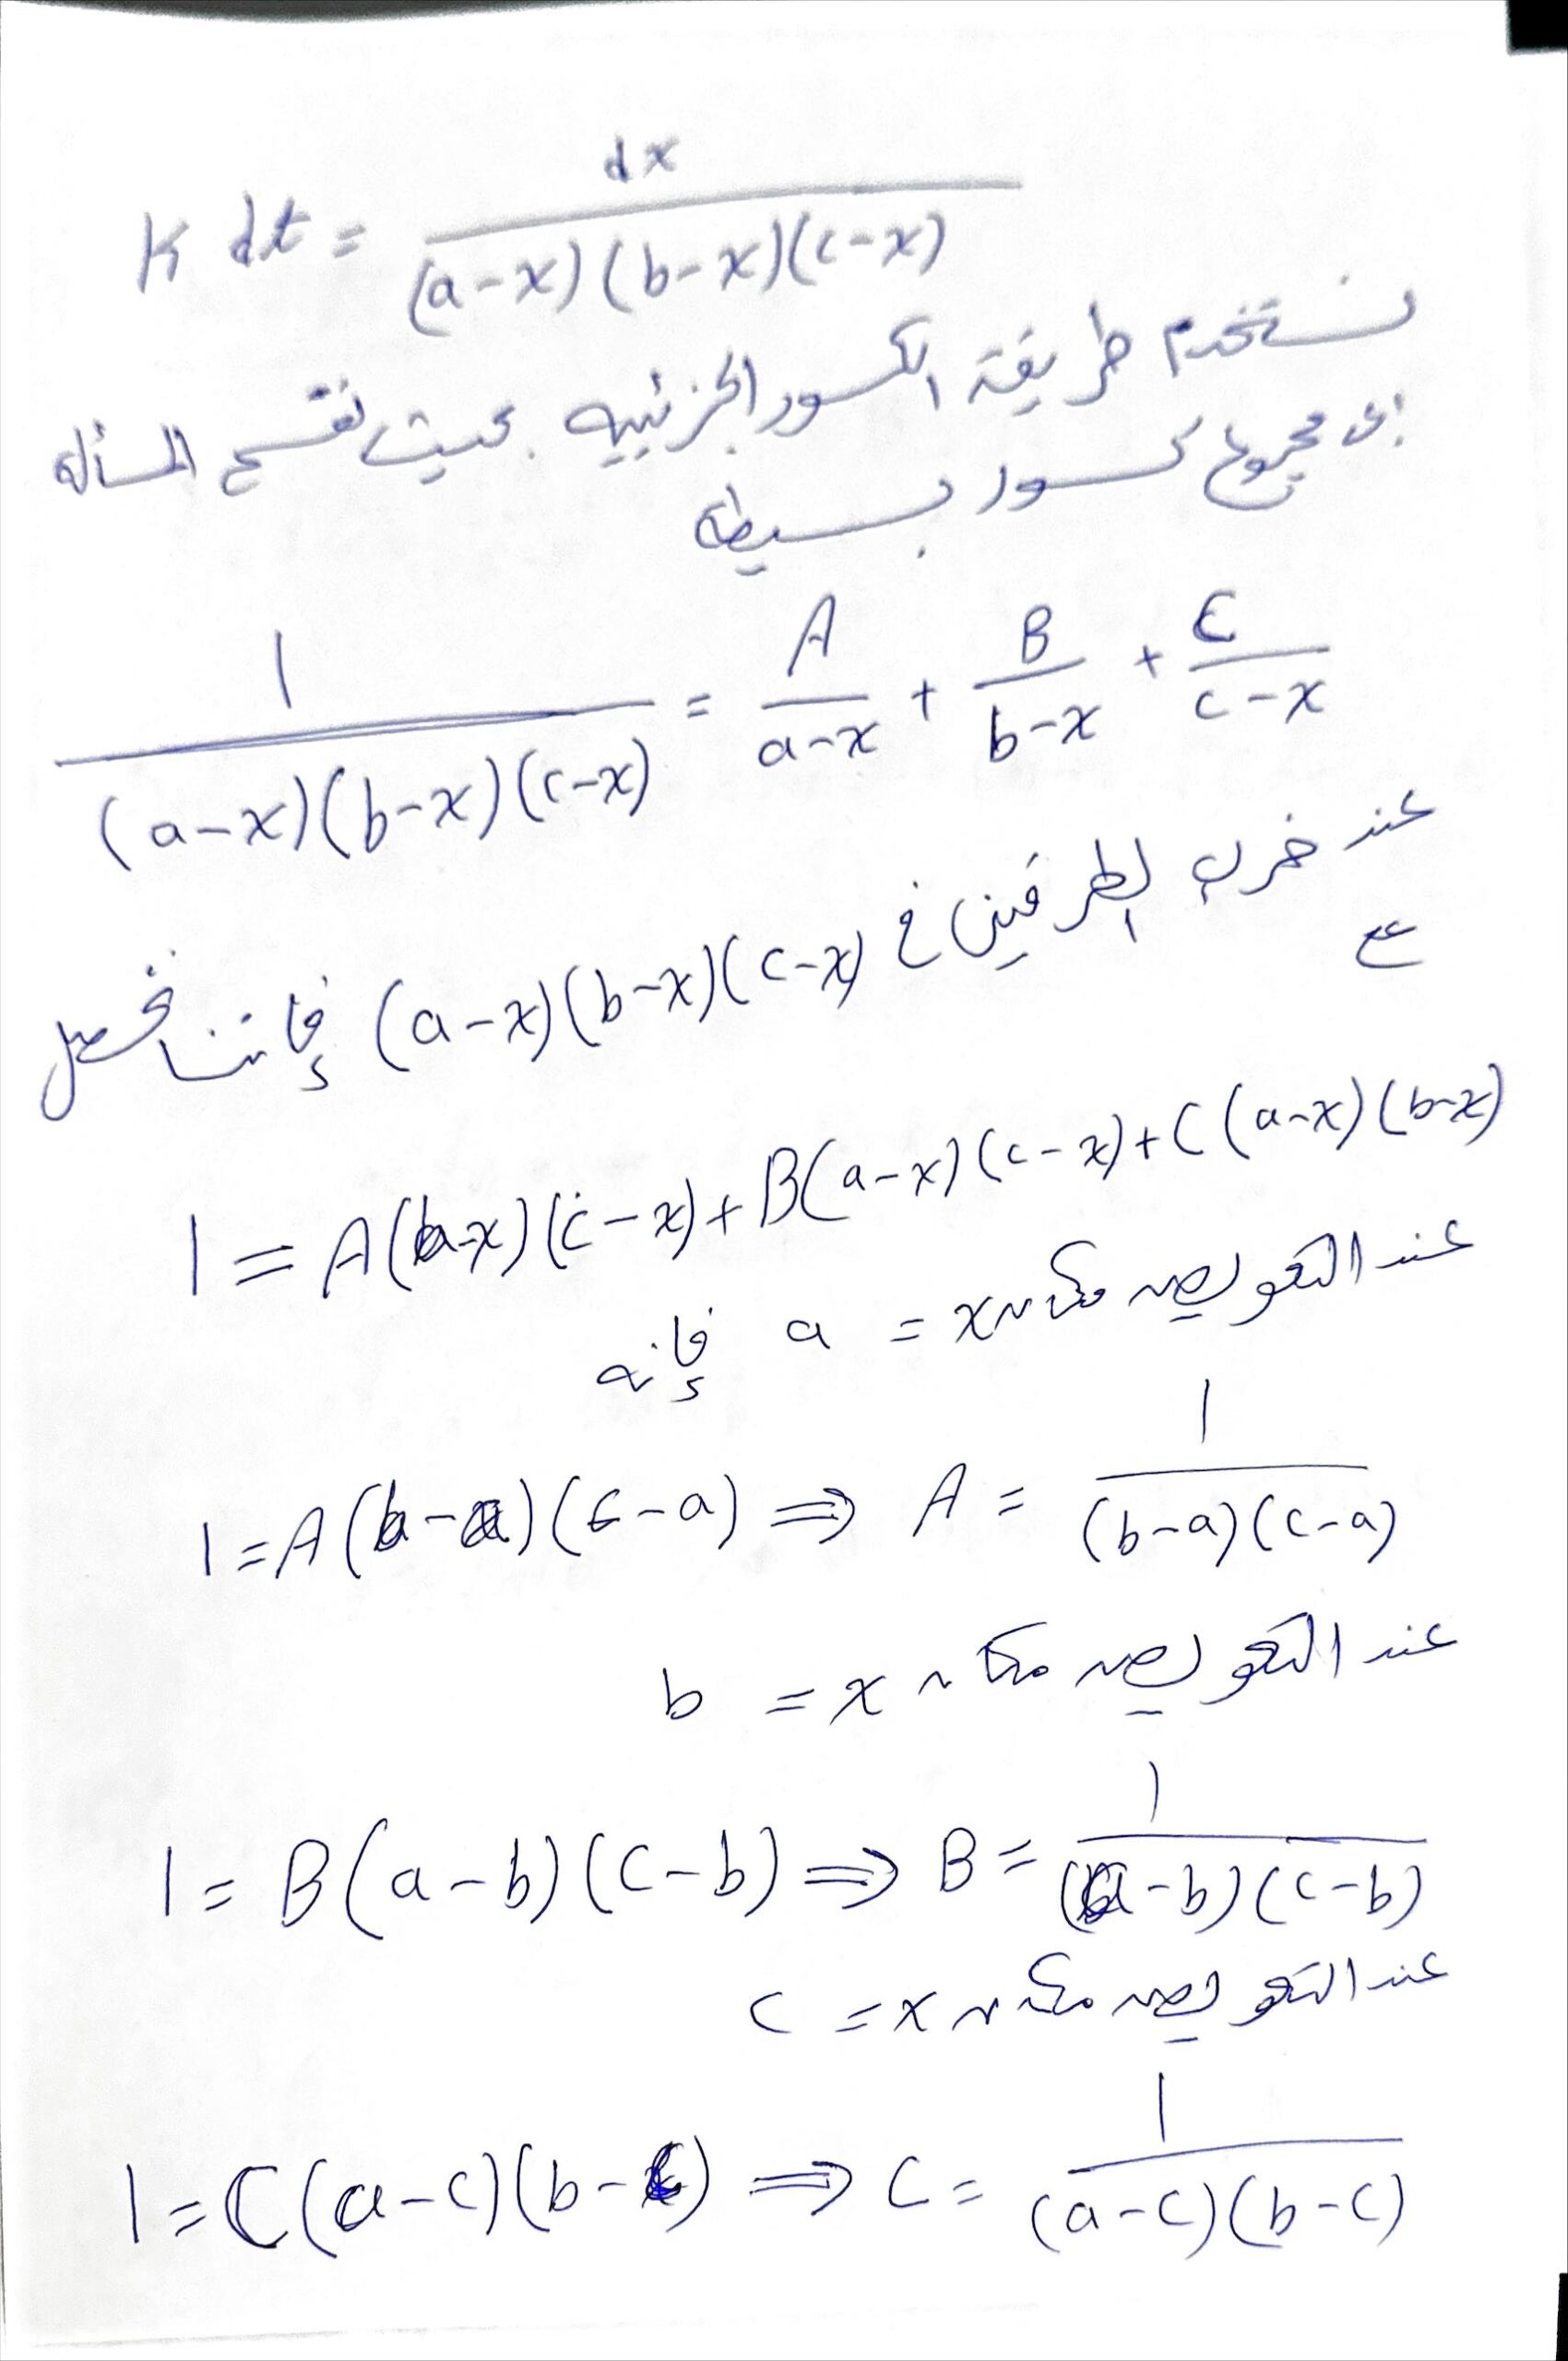 K dt = dx / (a-x)(b-x)(c-x)
نستخدم طريقة الكسور الجزئيه بحيث نقسم المسأله
إلى مجموع كسور بسيطه
1 / (a-x)(b-x)(c-x) = A / a-x + B / b-x + C / c-x
عند ضرب الطرفين في (a-x)(b-x)(c-x) فإننا نحصل
على
1 = A(b-x)(c-x) + B(a-x)(c-x) + C(a-x)(b-x)
عند التعويض مكان x = a فإنه
1 = A(b-a)(c-a) ⇒ A = 1 / (b-a)(c-a)
عند التعويض مكان x = b
1 = B(a-b)(c-b) ⇒ B = 1 / (a-b)(c-b)
عند التعويض مكان x = c
1 = C(a-c)(b-c) ⇒ C = 1 / (a-c)(b-c)